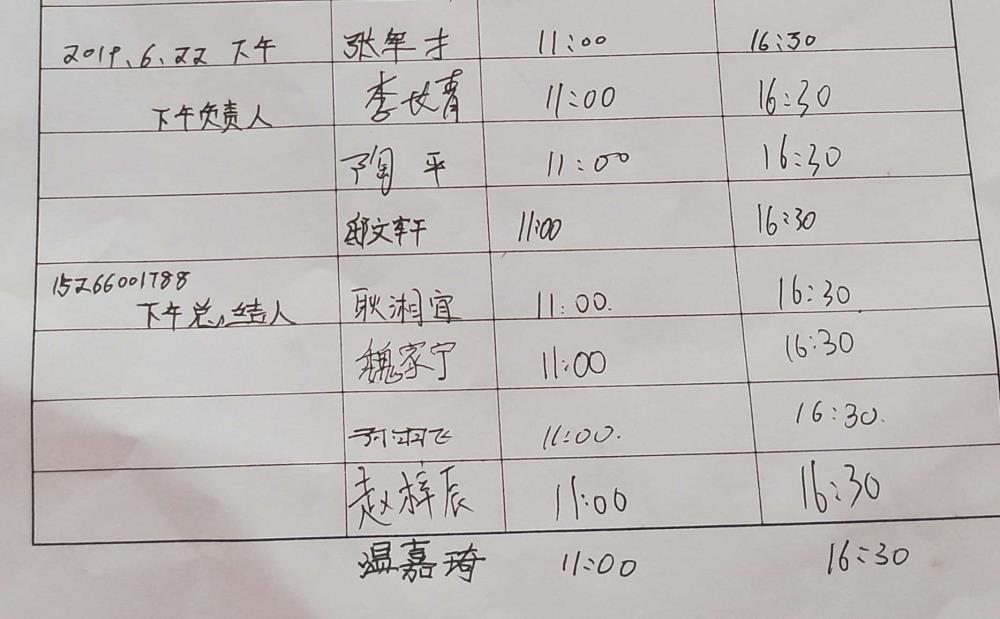 2019.6.22 下午 张军才 11:00 16:30
下午负责人 李长青 11:00 16:30
陶 平 11:00 16:30
邸文轩 11:00 16:30
15266001788
下午总结人 耿湘宜 11:00. 16:30
魏家宁 11:00 16:30
11:00. 16:30.
赵梓辰 11:00 16:30
温嘉琦 11:00 16:30